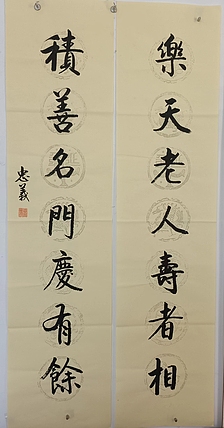 樂天老人壽者相
積善名門慶有餘
忠義